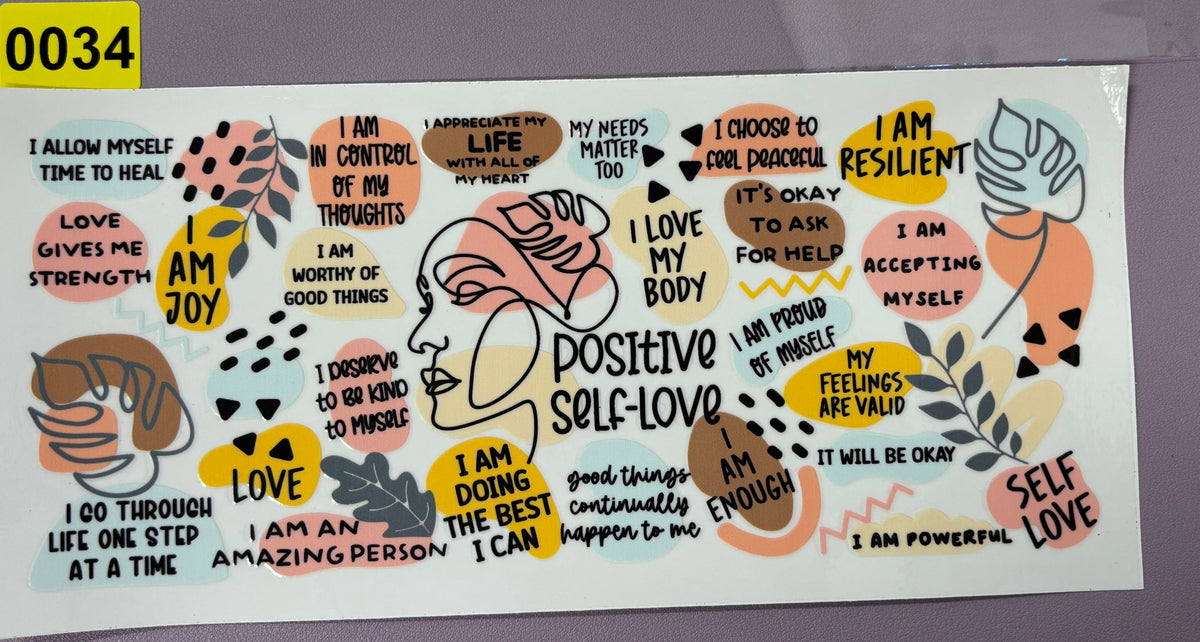 0034
I ALLOW MYSELF
TIME TO HEAL
I AM
IN CONTROL
OF MY
THOUGHTS
I APPRECIATE MY
LIFE
WITH ALL OF
MY HEART
MY NEEDS
MATTER
TOO
I CHOOSE to
feel peaceful
I AM
RESILIENT
LOVE
GIVES ME
STRENGTH
I
AM
JOY
I AM
WORTHY OF
GOOD THINGS
I LOVE
MY
BODY
IT'S OKAY
TO ASK
FOR HELP
I AM
ACCEPTING
MYSELF
POSITIVE
SELF-LOVE
I AM PROUD
OF MYSELF
MY
FEELINGS
ARE VALID
I DESERVE
to BE KIND
to MYSELF
LOVE
I AM
DOING
THE BEST
I CAN
good things
continually
happen to me
I
AM
ENOUGH
IT WILL BE OKAY
SELF
LOVE
I GO THROUGH
LIFE ONE STEP
AT A TIME
I AM AN
AMAZING PERSON
I AM POWERFUL